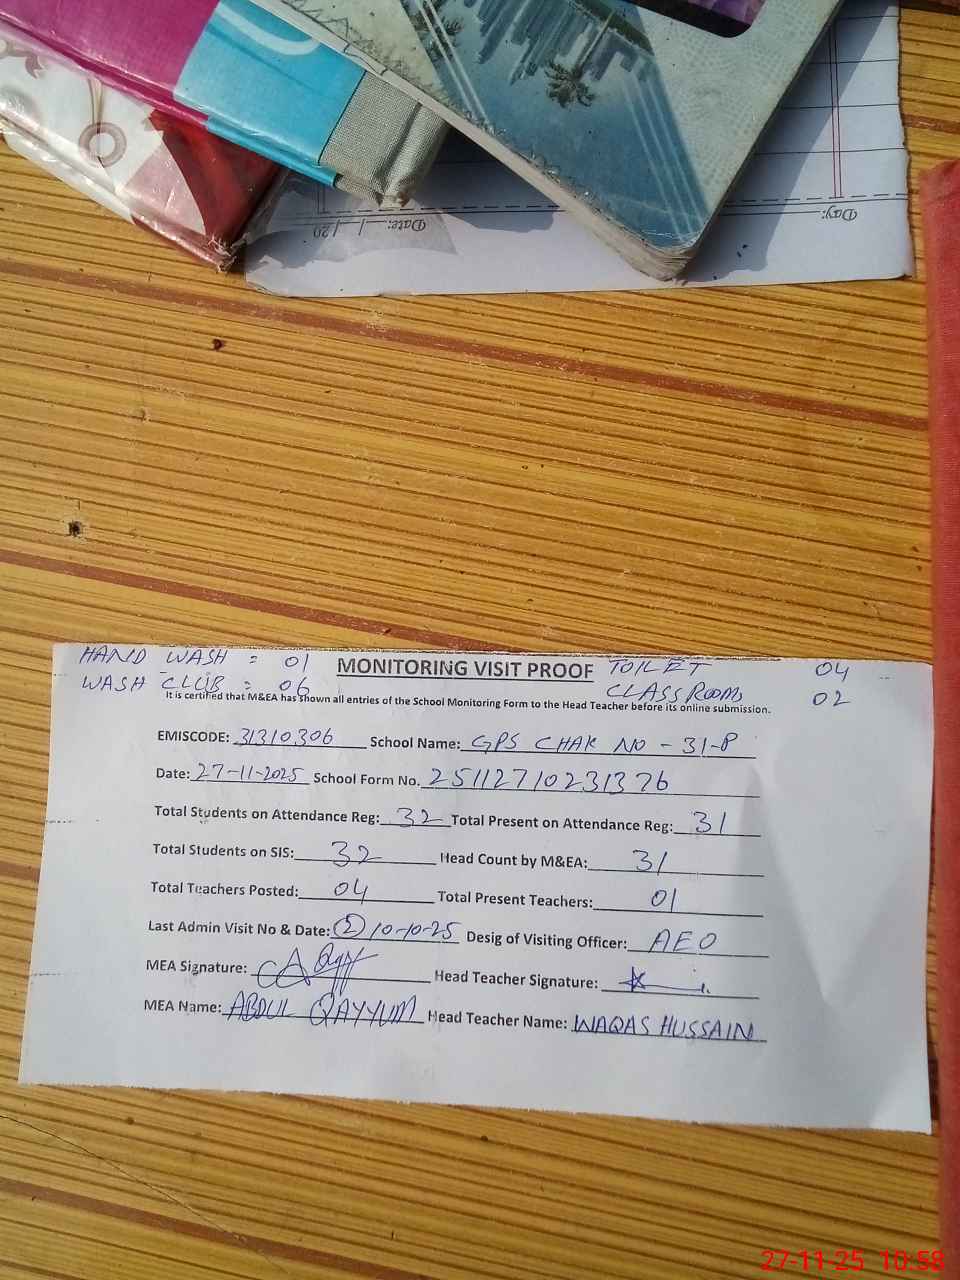 Day:
Date: / / 20
HAND WASH : 01 MONITORING VISIT PROOF TOILET 04
WASH CLUB : 06 CLASSROOMS 02
It is certified that M&EA has shown all entries of the School Monitoring Form to the Head Teacher before its online submission.
EMISCODE: 31310306 School Name: GPS CHAK NO - 31-P
Date: 27-11-2025 School Form No. 25112710231376
Total Students on Attendance Reg: 32 Total Present on Attendance Reg: 31
Total Students on SIS: 32 Head Count by M&EA: 31
Total Teachers Posted: 04 Total Present Teachers: 01
Last Admin Visit No & Date: (2) 10-10-25 Desig of Visiting Officer: AEO
MEA Signature: Head Teacher Signature:
MEA Name: ABDUL QAYYUM Head Teacher Name: WAQAS HUSSAIN
27-11-25 10:58